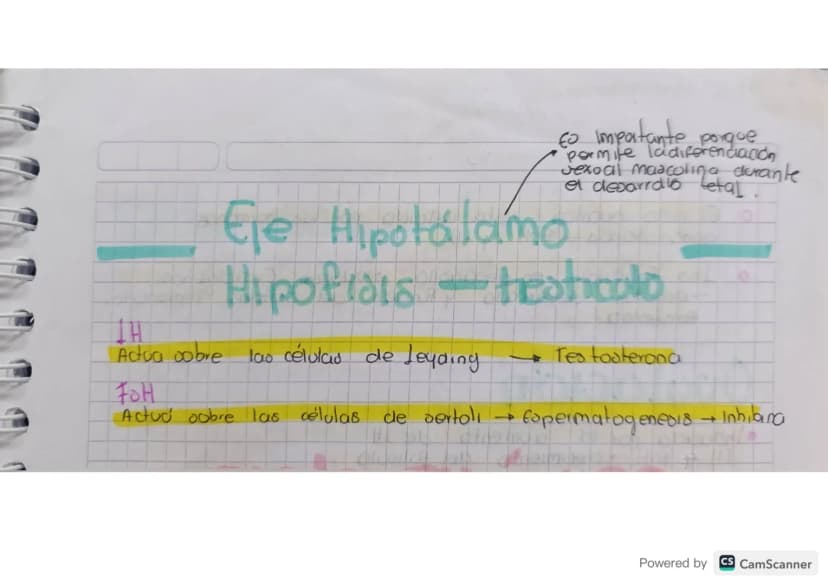 Es importante porque
permite la diferenciación
sexual masculina durante
el desarrollo fetal.
Eje Hipotálamo
Hipofisis - testiculo
LH
Actua sobre las células de Leyding → Testosterona
FSH
Actuá sobre las células de sertoli → Espermatogenesis → Inhibina
Powered by CS CamScanner